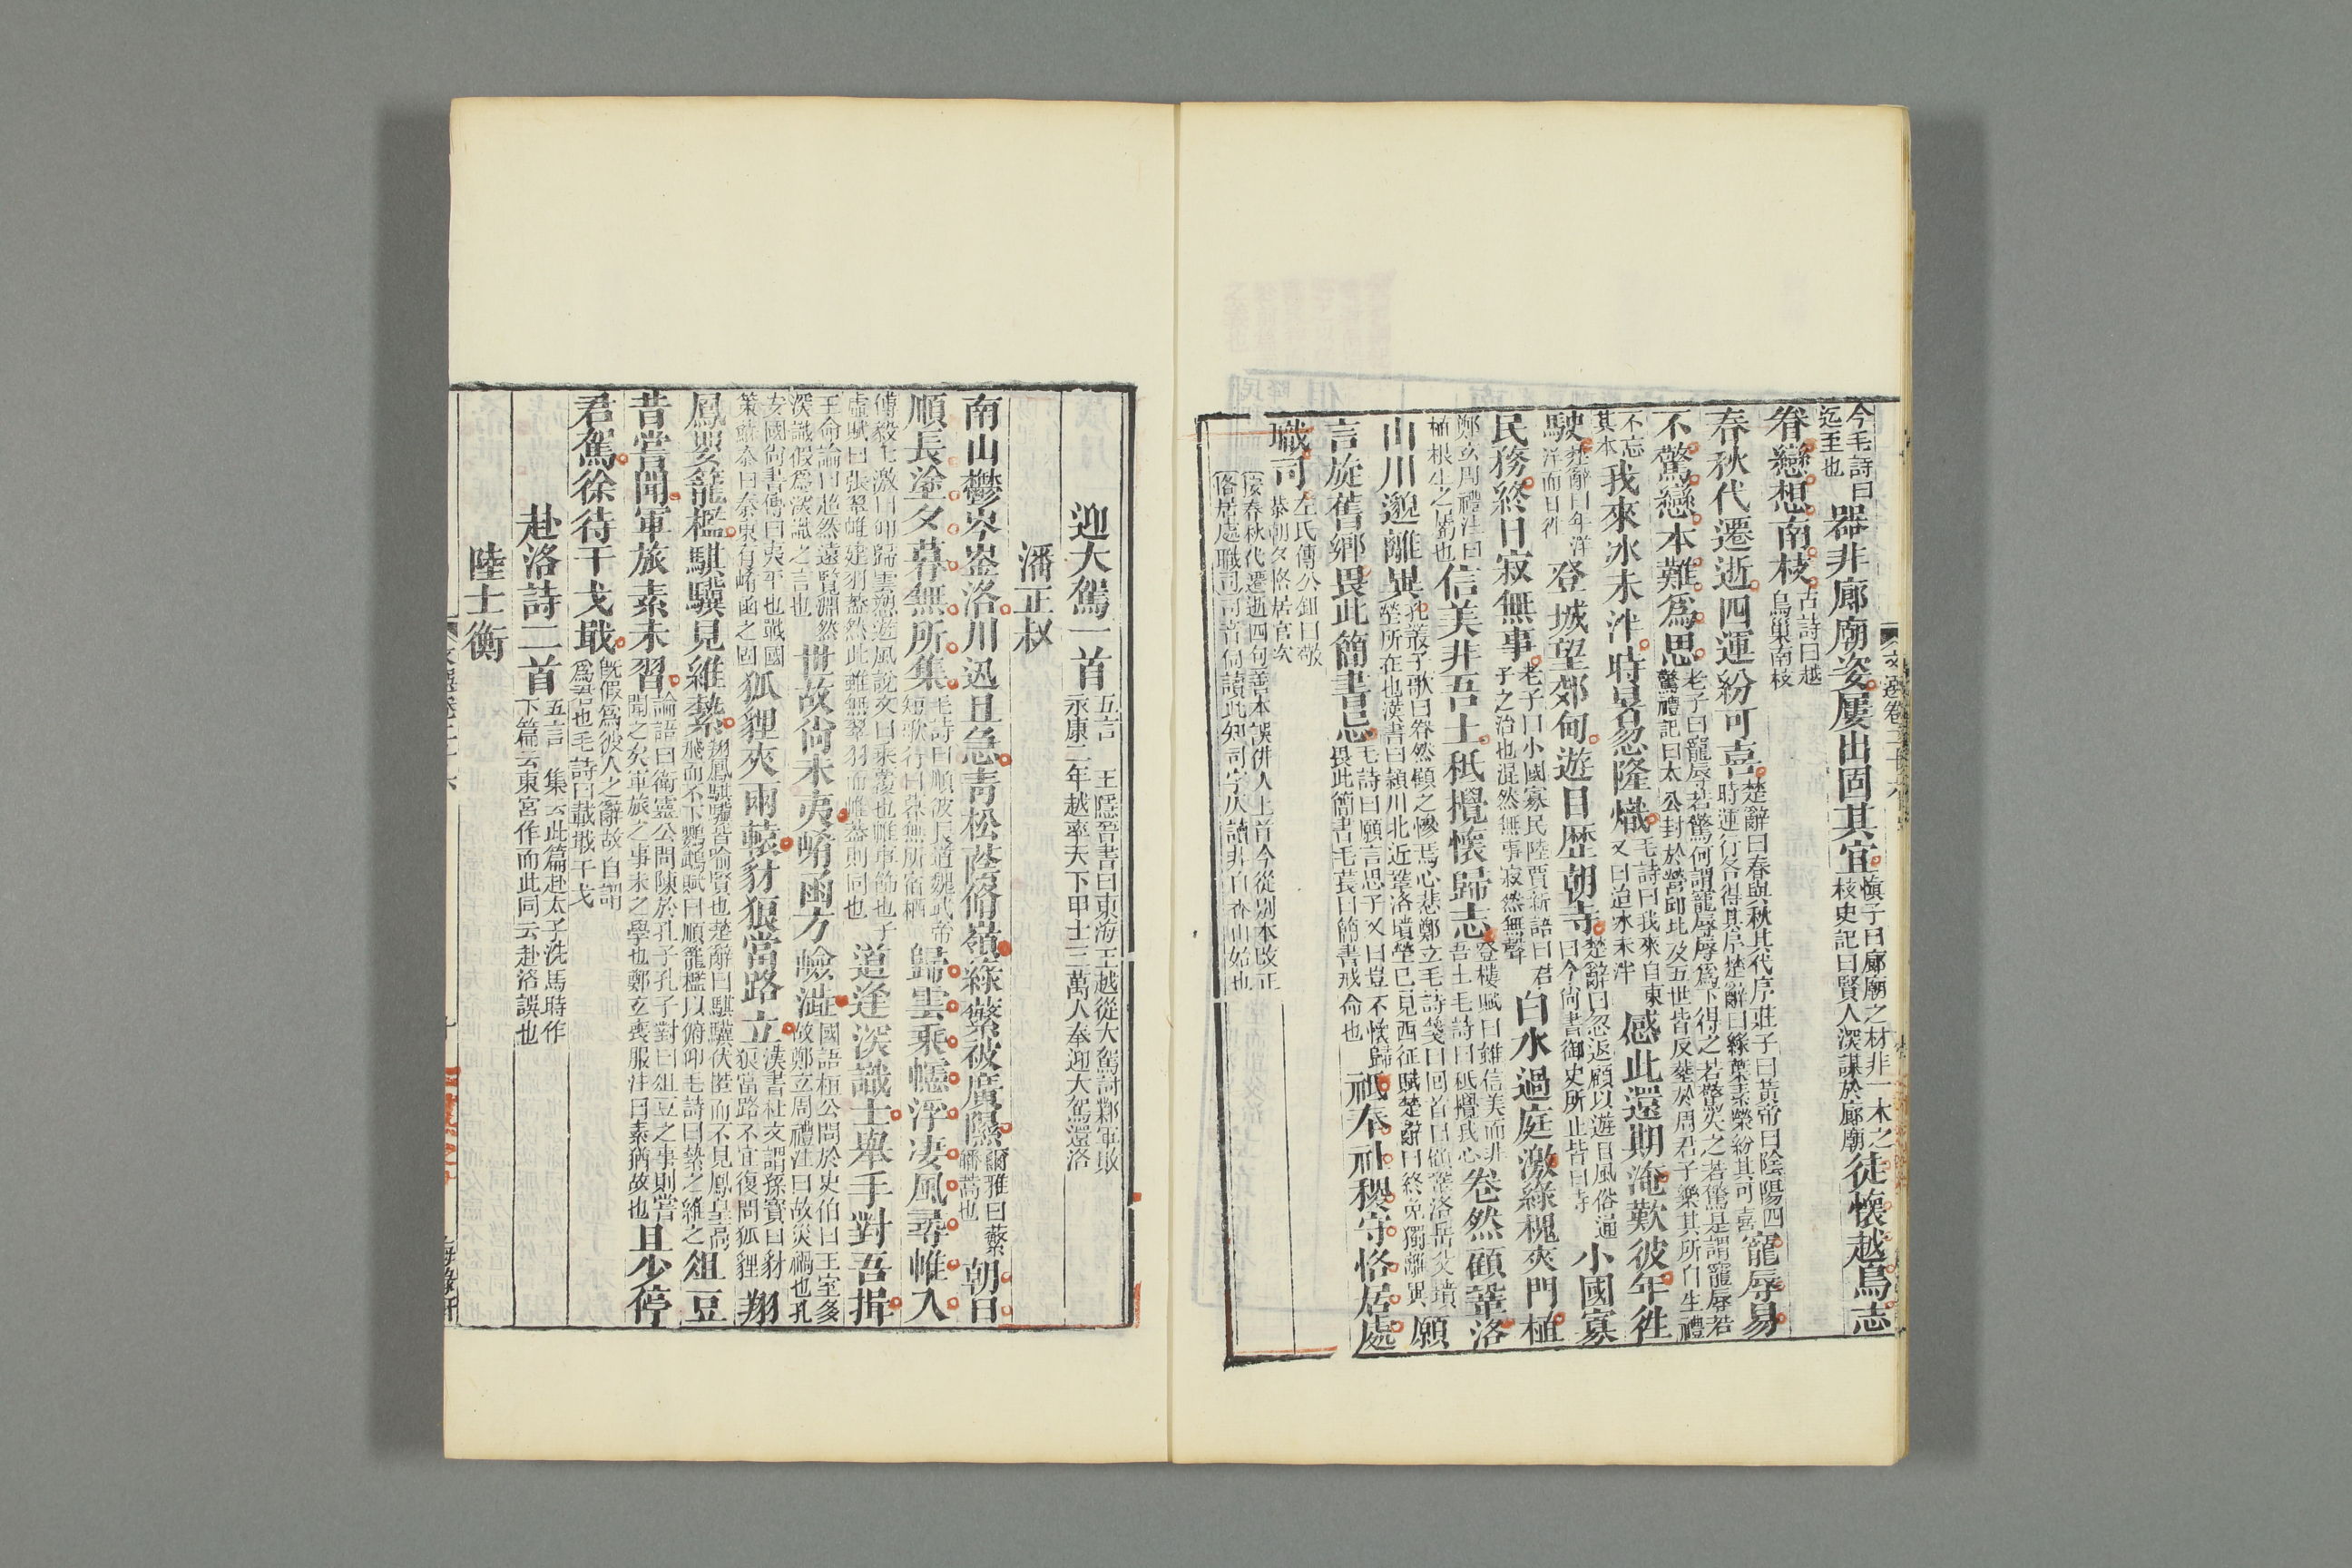 今毛詩曰
迄至也
器非廊廟姿屢出固其宜
慎子曰廊廟之材非一木之
枝史記曰賢人深謀於廊廟
徒懷越鳥志
眷戀想南枝
古詩曰越
鳥巢南枝
春秋代遷逝四運紛可喜
楚辭曰春與秋其代序莊子曰黃帝曰陰陽四
時運行各得其序楚辭曰綠葉素榮紛其可喜
寵辱易
不驚戀本難爲思
老子曰寵辱若驚何謂寵辱辱爲下得之若驚失之若驚是謂寵辱若
驚禮記曰太公封於營邱比及五世皆反葬於周君子樂其所自生禮
不忘
其本
我來冰未泮時暑忽隆熾
毛詩曰我來自東
又曰迨冰未泮
感此還期淹歎彼年往
駛
楚辭曰年洋
洋而日往
登城望郊甸遊目歷朝寺
楚辭曰忽返顧以遊目風俗通
曰今尚書御史所止皆曰寺
小國寡
民務終日寂無事
老子曰小國寡民陸賈新語曰君
子之治也混然無事寂然無聲
白水過庭激綠槐夾門植
鄭玄周禮注曰
植根生之屬也
信美非吾土秖攪懷歸志
登樓賦曰雖信美而非
吾土毛詩曰祗攪我心
卷然顧鞏洛
山川邈離異
孔叢子歌曰眷然顧之慘焉心悲鄭玄毛詩箋曰回首曰顧鞏洛岳父墳
塋所在也漢書曰潁川北近鞏洛墳塋已見西征賦楚辭曰終免獨離異
願
言旋舊鄉畏此簡書忌
毛詩曰願言思子又曰豈不懷歸
畏此簡書毛萇曰簡書戒命也
祗奉社稷守恪居處
職司
左氏傳公鉏曰敬
恭朝夕恪居官次
迎大駕一首
五言　王隱晉書曰東海王越從大駕討鄴軍敗
永康二年越率天下甲士三萬人奉迎大駕還洛
潘正叔
南山鬱岑崟洛川迅且急青松蔭脩嶺綠蘩被廣隰
爾雅曰蘩
皤蒿也
朝日
順長塗夕暮無所集
毛詩曰順彼長道魏武帝
短歌行曰暮無所宿栖
歸雲乘幰浮淒風尋帷入
傅毅七激曰仰歸雲愬遊風說文曰乘覆也帷車飾也子
虛賦曰張翠帷建羽蓋然此雖無翠羽而帷蓋則同也
道逢深識士舉手對吾揖
王命論曰超然遠覽淵然
深識假爲深識之言也
世故尚未夷崤函方嶮澁
國語桓公問於史伯曰王室多
故鄭玄周禮注曰故災禍也孔
安國尚書傳曰夷平也戰國
策蘇秦曰秦東有崤函之固
狐狸夾兩轅豺狼當路立
漢書杜文謂孫寶曰豺
狼當路不宜復問狐狸
翔
鳳嬰籠檻騏驥見維縶
翔鳳騏驥皆喻賢也楚辭曰騏驥伏匿而不見鳳皇高
飛而不下鸚鵡賦曰順籠檻以俯仰毛詩曰縶之維之
俎豆
昔嘗聞軍旅素未習
論語曰衛靈公問陳於孔子孔子對曰俎豆之事則嘗
聞之矣軍旅之事未之學也鄭玄喪服注曰素猶故也
且少停
君駕徐待干戈戢
旣假爲彼人之辭故自謂
爲君也毛詩曰載戢干戈
赴洛詩二首
五言　集云此篇赴太子洗馬時作
下篇云東宮作而此同云赴洛誤也
陸士衡